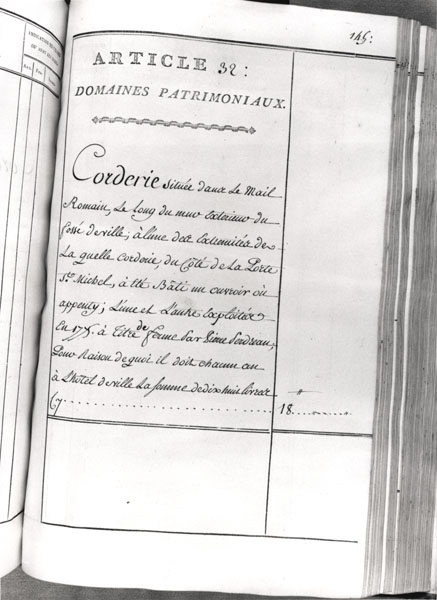 145:
ARTICLE 32:
DOMAINES PATRIMONIAUX.
Corderie située dans Le Mail
Romain, Le Long du mur Exterieur du
fossé de ville; à L'une des Extremitées de
La quelle corderie, du Côté de La Porte
St. Michel, à été Bâti un ouvroir ou
appenty; L'une et L'autre Exploitées
En 177 . à titre de ferme par
Pour Raison de quoi il doit chacun an
à L'hôtel de ville La somme de dix huit livres
Cy . . . . . . . . . . 18